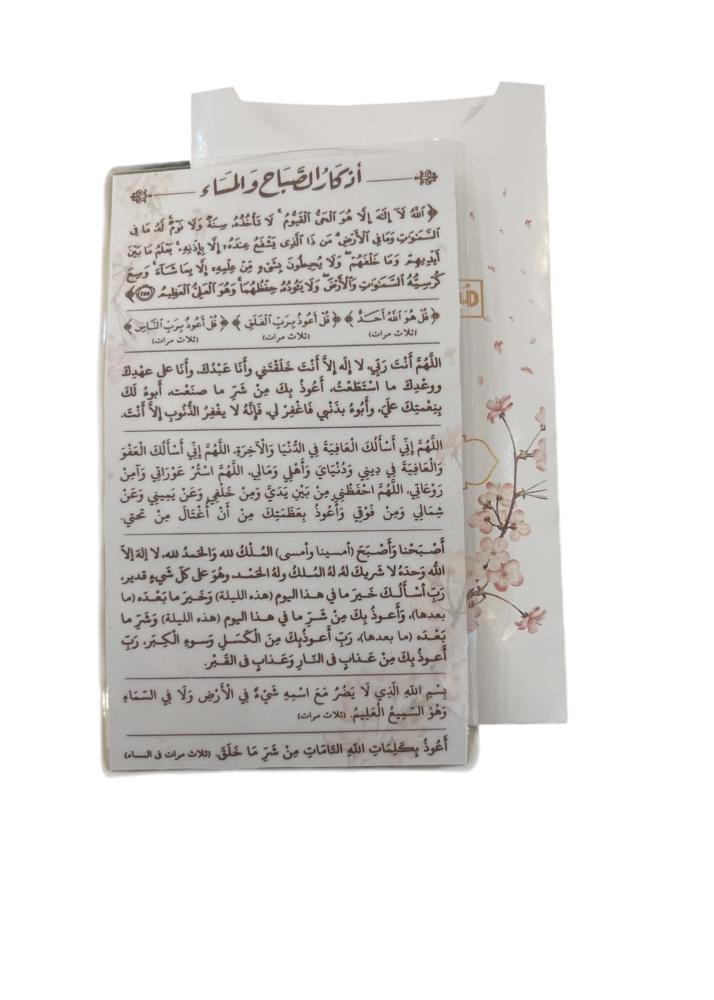 أذكار الصباح والمساء
﴿ ٱللَّهُ لَآ إِلَٰهَ إِلَّا هُوَ ٱلْحَىُّ ٱلْقَيُّومُ ۚ لَا تَأْخُذُهُۥ سِنَةٌ وَلَا نَوْمٌ ۚ لَّهُۥ مَا فِى
ٱلسَّمَٰوَٰتِ وَمَا فِى ٱلْأَرْضِ ۗ مَن ذَا ٱلَّذِى يَشْفَعُ عِندَهُۥٓ إِلَّا بِإِذْنِهِۦ ۚ يَعْلَمُ مَا بَيْنَ
أَيْدِيهِمْ وَمَا خَلْفَهُمْ ۖ وَلَا يُحِيطُونَ بِشَىْءٍ مِّنْ عِلْمِهِۦٓ إِلَّا بِمَا شَآءَ ۚ وَسِعَ
كُرْسِيُّهُ ٱلسَّمَٰوَٰتِ وَٱلْأَرْضَ ۖ وَلَا يَـُٔودُهُۥ حِفْظُهُمَا ۚ وَهُوَ ٱلْعَلِىُّ ٱلْعَظِيمُ ﴿٢٥٥﴾ ﴾
﴿ قُلْ هُوَ اللَّهُ أَحَدٌ ﴾ ﴿ قُلْ أَعُوذُ بِرَبِّ الْفَلَقِ ﴾ ﴿ قُلْ أَعُوذُ بِرَبِّ النَّاسِ ﴾
(ثلاث مرات) (ثلاث مرات) (ثلاث مرات)
اللَّهُمَّ أَنْتَ رَبِّي، لا إِلَه إِلاَّ أَنْتَ خَلَقْتَني وأَنَا عَبْدُكَ، وأَنَا على عهْدِكَ
ووعْدِكَ ما اسْتَطَعْتُ، أَعُوذُ بِكَ مِنْ شَرِّ ما صنَعْتُ، أَبوءُ لَكَ
بِنِعْمتِكَ عَلَيَّ، وأَبُوءُ بذَنْبي فَاغْفِرْ لي، فَإِنَّهُ لا يغْفِرُ الذُّنُوبَ إِلاَّ أَنْتَ.
اللَّهُمَّ إِنِّي أَسْأَلُكَ الْعَافِيَةَ فِي الدُّنْيَا وَالْآخِرَةِ، اللَّهُمَّ إِنِّي أَسْأَلُكَ الْعَفْوَ
وَالْعَافِيَةَ فِي دِينِي وَدُنْيَايَ وَأَهْلِي وَمَالِي، اللَّهُمَّ اسْتُرْ عَوْرَاتِي وَآمِنْ
رَوْعَاتِي، اللَّهُمَّ احْفَظْنِي مِنْ بَيْنِ يَدَيَّ وَمِنْ خَلْفِي وَعَنْ يَمِينِي وَعَنْ
شِمَالِي وَمِنْ فَوْقِي وَأَعُوذُ بِعَظَمَتِكَ مِنْ أَنْ أُغْتَالَ مِنْ تَحْتِي.
أَصْبَحْنا وَأَصْبَحَ (أمسينا وأمسى) المُلْكُ لله وَالحَمدُ لله، لا إلهَ إلاّ
اللّه وَحدَهُ لا شَريكَ لهُ، لهُ المُلكُ ولهُ الحَمْد، وهُوَ على كلّ شَيءٍ قدير،
رَبِّ أسْأَلُكَ خَيرَ ما في هذا اليوم (هذه الليلة) وَخَيرَ ما بَعْدَه (ما
بعدها)، وَأَعوذُ بِكَ مِنْ شَرِّ ما في هذا اليوم (هذه الليلة) وَشَرِّ ما
بَعْدَه (ما بعدها)، رَبِّ أَعوذُبِكَ مِنَ الْكَسَلِ وَسوءِ الْكِبَر، رَبِّ
أَعوذُ بِكَ مِنْ عَذابٍ في النّارِ وَعَذابٍ في القَبْر.
بِسْمِ اللَّهِ الَّذِي لَا يَضُرُّ مَعَ اسْمِهِ شَيْءٌ فِي الْأَرْضِ وَلَا فِي السَّمَاءِ
وَهُوَ السَّمِيعُ الْعَلِيمُ. (ثلاث مرات)
أَعُوذُ بِكَلِمَاتِ اللَّهِ التَّامَاتِ مِنْ شَرِّ مَا خَلَقَ. (ثلاث مرات فى المساء)